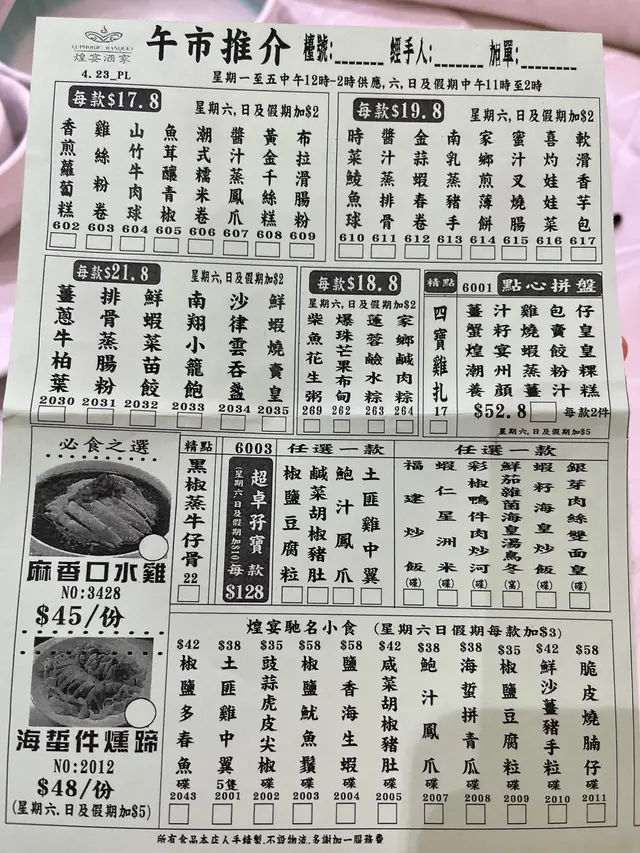 EUPHORIE BANQUET
煌宴酒家
4.23_PL
午市推介 檯號:_______ 經手人:_______ 加單:_______
星期一至五中午12時-2時供應,六,日及假期中午11時至2時
每款$17.8
星期六,日及假期加$2
香煎蘿蔔糕 602
雞絲粉卷 603
山竹牛肉球 604
魚茸釀青椒 605
潮式糯米卷 606
醬汁蒸鳳爪 607
黃金千絲糕 608
布拉滑腸粉 609
每款$19.8
星期六,日及假期加$2
時菜鯪魚球 610
醬汁蒸排骨 611
金蒜蝦春卷 612
南乳蒸豬手 613
家鄉煎薄餅 614
蜜汁叉燒腸 615
喜灼娃娃菜 616
軟滑香芋包 617
每款$21.8
星期六,日及假期加$2
薑蔥牛柏葉 2030
排骨蒸腸粉 2031
鮮蝦菜苗餃 2032
南翔小籠飽 2033
沙律雲吞盞 2034
鮮蝦燒賣皇 2035
每款$18.8
星期六,日及假期加$2
柴魚花生粥 269
爆珠芒果布甸 262
蓮蓉鹼水粽 263
家鄉鹹肉粽 264
精點
四寶雞扎
17
6001 點心拼盤
薑汁雞包仔
蟹籽燒賣皇
煌宴蝦餃粿
潮州蒸粉
養顏薑汁糕
$52.8
每款2件
星期六,日及假期加$5
必食之選
麻香口水雞
NO:3428
$45/份
海蜇件燻蹄
NO:2012
$48/份
(星期六,日及假期加$5)
精點
黑椒蒸牛仔骨
22
6003 任選一款
超卓孖寶
(星期六日及假期加$10)
每款
$128
椒鹽豆腐粒
鹹菜胡椒豬肚
鮑汁鳳爪
土匪雞中翼
任選一款
福建炒飯(碟)
蝦仁星洲米(碟)
彩椒鴨件肉炒河(碟)
鮮茄雜菌海皇湯烏冬(窩)
蝦籽海皇炒飯(碟)
銀芽肉絲雙面皇(碟)
煌宴馳名小食 (星期六日假期每款加$3)
$42 椒鹽多春魚 碟 2043
$38 土匪雞中翼 5隻 2001
$35 豉蒜虎皮尖椒 碟 2002
$58 椒鹽魷魚鬚 碟 2003
$58 鹽香海生蝦 碟 2004
$42 咸菜胡椒豬肚 碟 2005
$38 鮑汁鳳爪 碟 2007
$38 海蜇拼青瓜 碟 2008
$35 椒鹽豆腐粒 碟 2009
$42 鮮沙薑豬手 碟 2010
$58 脆皮燒腩仔 碟 2011
所有食品本庄人手精製,不設物流,多謝加一服務費